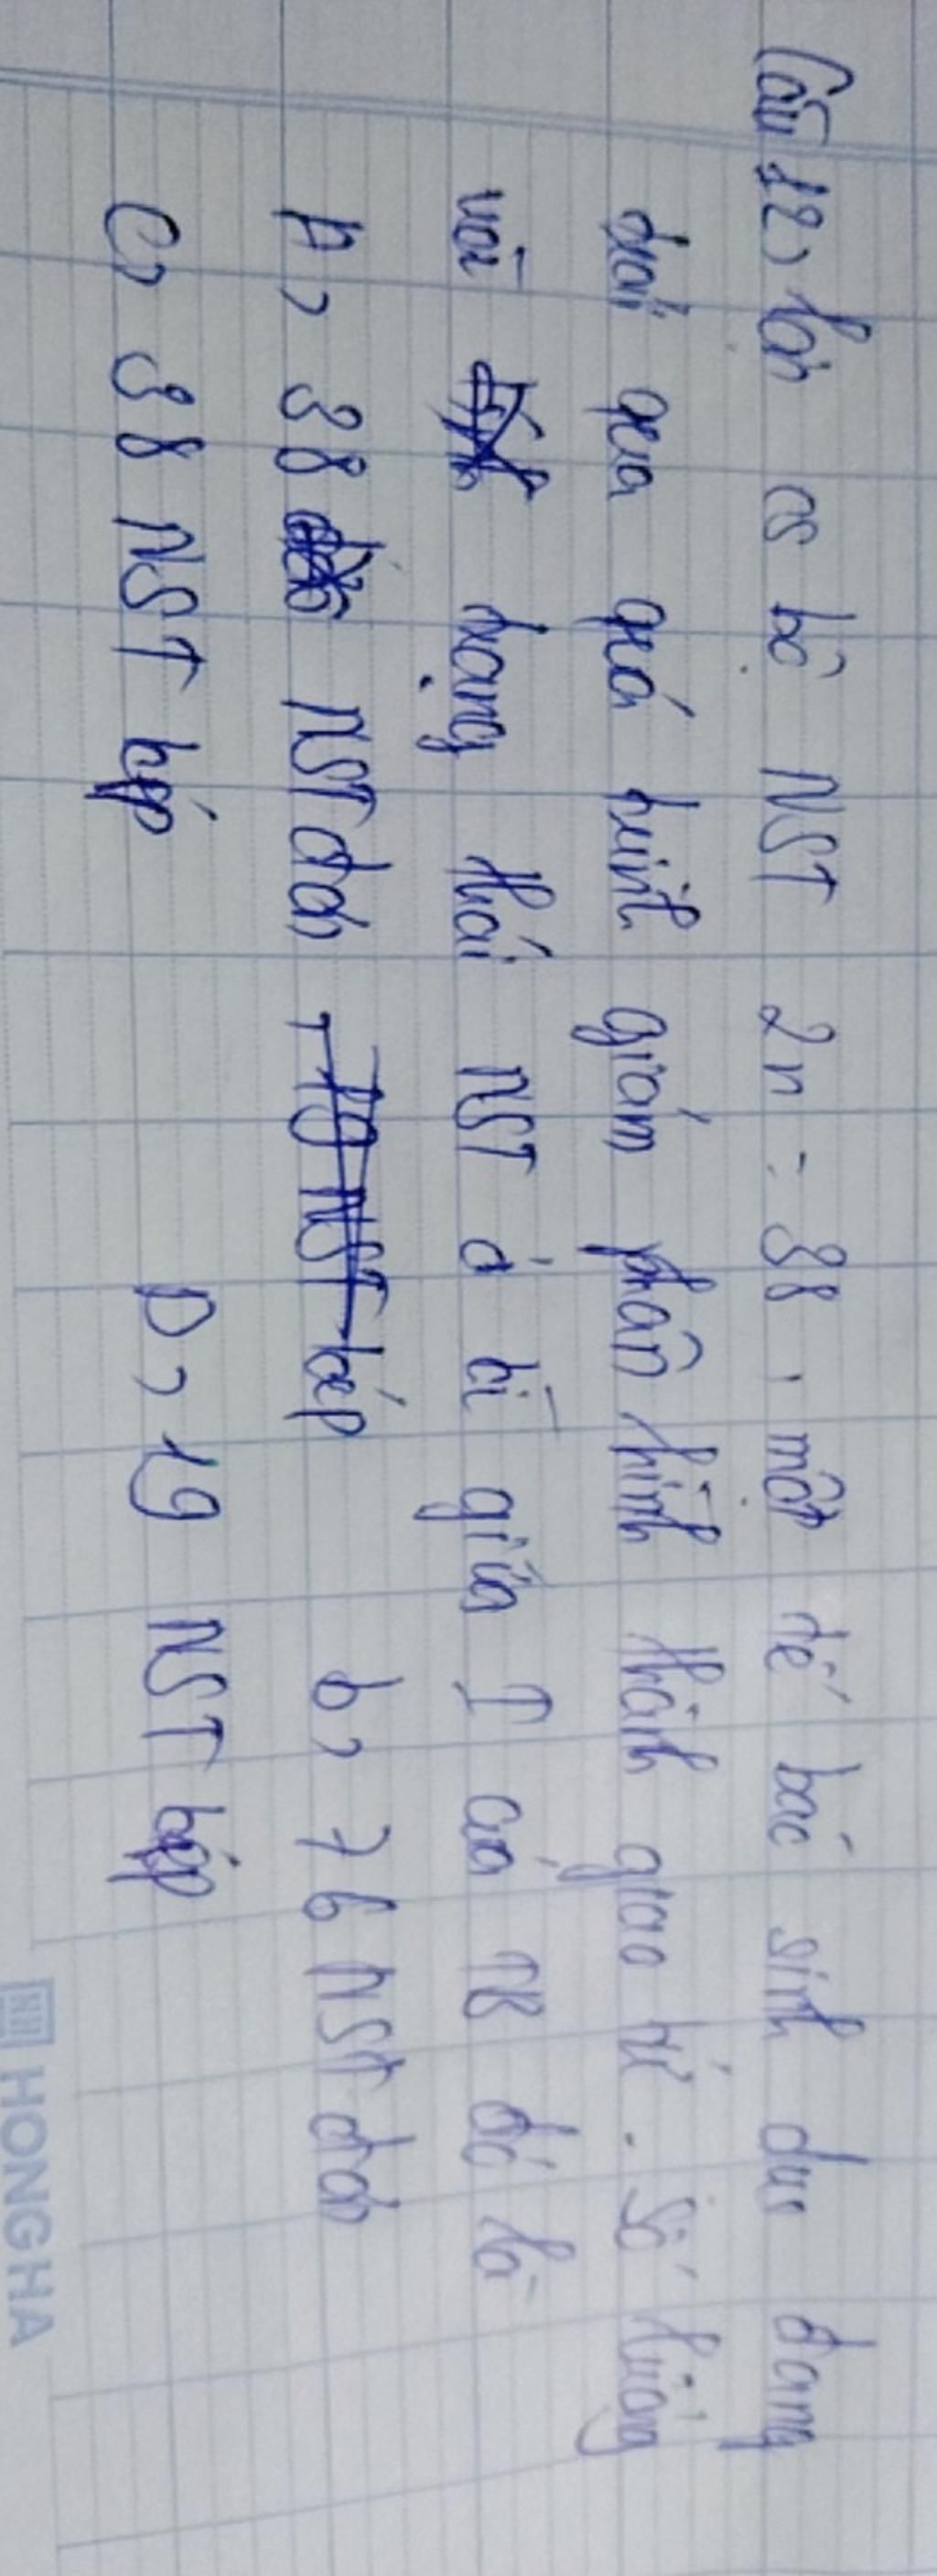 Câu 12, lợn có bộ NST 2n = 38, một tế bào sinh dục đang
trải qua quá trình giảm phân hình thành giao tử. Số lượng
và trạng thái NST ở kì giữa I của TB đó là
A, 38 NST đơn
b, 76 NST đơn
C, 38 NST kép
D, 19 NST kép
HONG HA